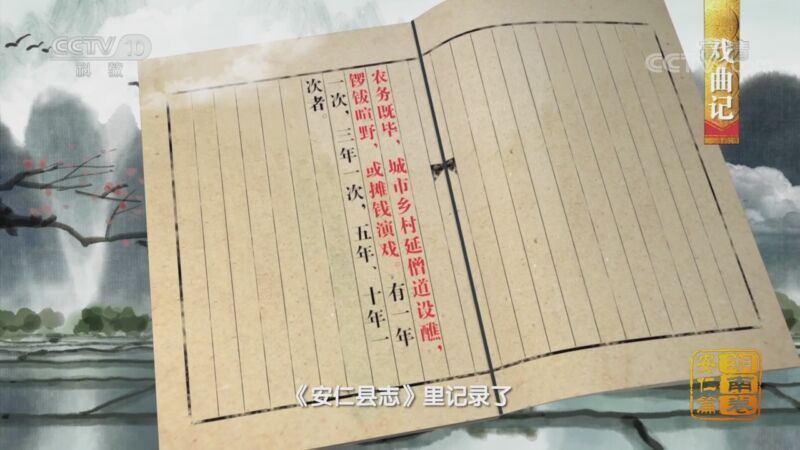 CCTV 10
科教
戏曲记
农务既毕，城市乡村延僧道设醮，
锣钹喧野，或摊钱演戏。有一年
次，三年一次，五年、十年一
次者。
安仁篇
《安仁县志》里记录了